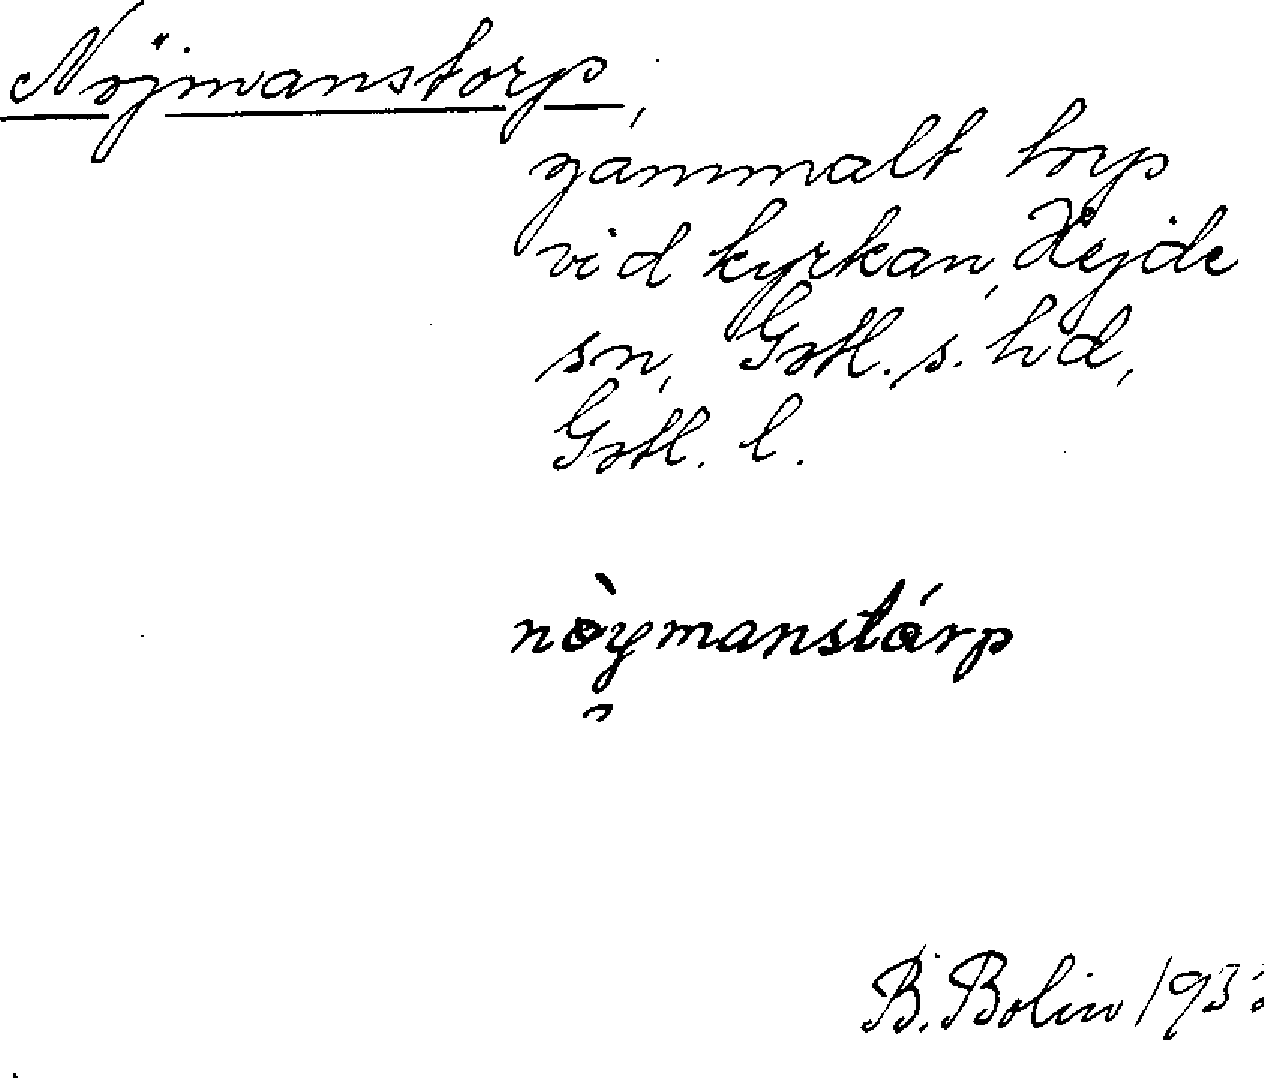 Nöjmanstorp,
gammalt torp
vid kyrkan, Hejde
sn, Gotl. s. hd,
Gotl. l.
nòymanstárp
B. Bolin